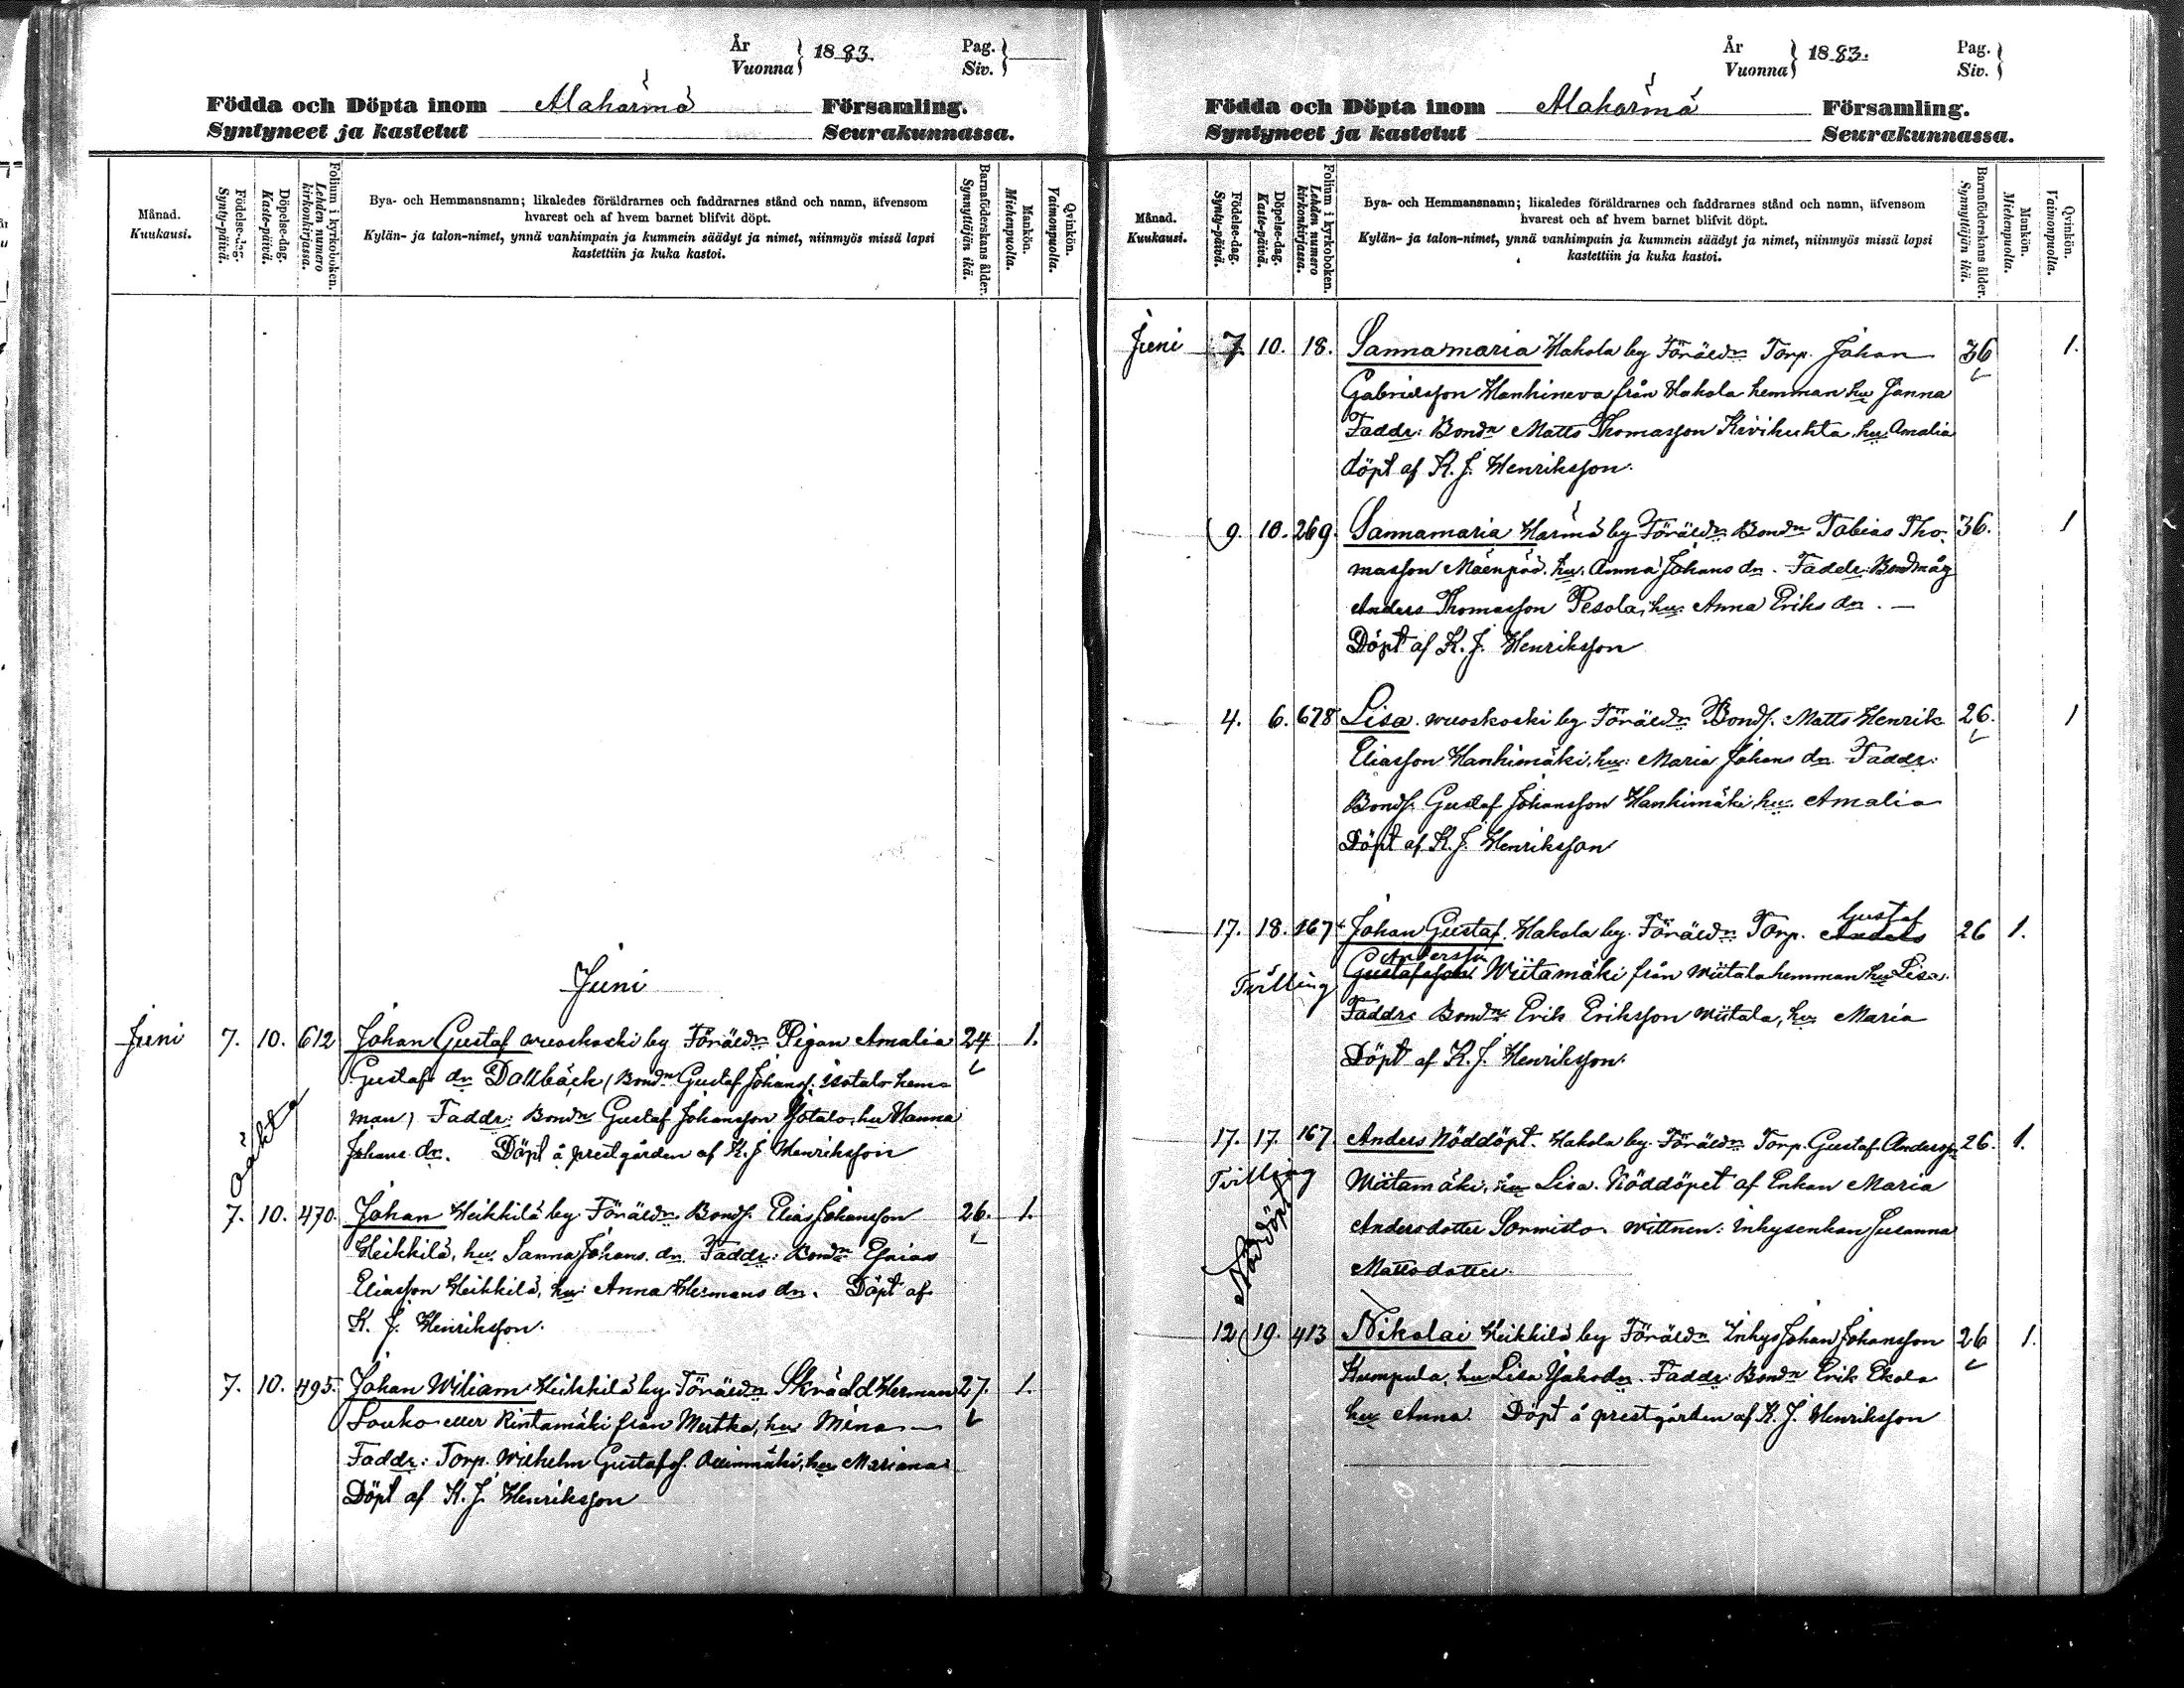 År
Vuonna } 1883.
Pag.
Siv. }
Födda och Döpta inom Alahärmä Församling.
Syntyneet ja kastetut Seurakunnassa.
Månad.
Kuukausi.
Födelse-dag.
Synty-päivä.
Döpelse-dag.
Kaste-päivä.
Folium i kyrkoboken.
Lehden numero
kirkonkirjassa.
Bya- och Hemmansnamn; likaledes föräldrarnes och faddrarnes stånd och namn, äfvensom
hvarest och af hvem barnet blifvit döpt.
Kylän- ja talon-nimet, ynnä vanhimpain ja kummein säädyt ja nimet, niinmyös missä lapsi
kastettiin ja kuka kastoi.
Barnaföderskans ålder.
Synnyttäjän ikä.
Mankön.
Miehenpuolia.
Qvinkön.
Vaimonpuolia.
Juni
Juni 7. 10. 612 Johan Gustaf wuoskoski by Föräldr Pigan Amalia 24 1.
Gustafs dr Dallbäck (Bondn Gustaf Johanss. isotalo hem-
man) Faddr: Bondn Gustaf Johansson Isotalo, hu Hanna
Johans dr. Döpt å prestgården af K. J. Henriksson
oäkta
7. 10. 470. Johan Heikkilä by Föräldr Bonds. Elias Johansson 26. 1.
Heikkilä, hu. Sanna Johans dr Faddr: Bondn Esaias
Eliasson Heikkilä, hu: Anna Hermans dr. Döpt af
K. J. Henriksson.
7. 10. 495. Johan Wiliam Heikkilä by Föräldr Skrädd Herman 27. 1.
Louko eller Rintamäki från, hu Mina
Faddr: Torp. Wilhelm Gustafss., hu Mariana
Döpt af K. J. Henriksson
År
Vuonna } 1883.
Pag.
Siv. }
Födda och Döpta inom Alahärmä Församling.
Syntyneet ja kastetut Seurakunnassa.
Månad.
Kuukausi.
Födelse-dag.
Synty-päivä.
Döpelse-dag.
Kaste-päivä.
Folium i kyrkoboken.
Lehden numero
kirkonkirjassa.
Bya- och Hemmansnamn; likaledes föräldrarnes och faddrarnes stånd och namn, äfvensom
hvarest och af hvem barnet blifvit döpt.
Kylän- ja talon-nimet, ynnä vanhimpain ja kummein säädyt ja nimet, niinmyös missä lapsi
kastettiin ja kuka kastoi.
Barnaföderskans ålder.
Synnyttäjän ikä.
Mankön.
Miehenpuolia.
Qvinkön.
Vaimonpuolia.
Juni 7 10. 18. Sannamaria Hakola by Föräldr Torp. Johan 36 1.
Gabrielsson Hanhineva från Hakola hemman hu Sanna
Faddr: Bondn Matts Thomasson Kivihuhta, hu. Amalia
döpt af K. J. Henriksson.
9. 10. 269. Sannamaria Härmä by Föräldr Bondn Tobias Tho- 36. 1
masson Mäenpää. hu. Anna Johans dr. Faddr: Bondmåg
Anders Thomasson Pesola, hu. Anna Eriks dr.
Döpt af K. J. Henriksson
4. 6. 678 Lisa. wuoskoski by Föräldr Bonds. Matts Henrik 26. 1
Eliasson Hanhimäki, hu: Maria Johans dr Faddr:
Bonds. Gustaf Johansson Hanhimäki hu. Amalia
Döpt af K. J. Henriksson
17. 18. 167 Johan Gustaf. Hakola by. Föräldr Torp. Anders Gustaf 26 1.
Gustafsson Andersson Wiitamäki från Wiitala hemman hu Lisa.
Tvilling
Faddr: Bondn Erik Eriksson Wiitala, hu Maria
Döpt af K. J. Henriksson.
17. 17. 167. Anders Nöddöpt. Hakola by. Föräldr Torp. Gustaf Anderssn 26. 1.
Tvilling Wiitamäki, hu Lisa. Nöddöpet af Enkan Maria
Nöddöpt
Andersdotter Sormisto. Wittnen: Inhysenkan Susanna
Mattsdotter.
12 19. 413 Nikolai Heikkilä by Föräldr Inhys Johan Johansson 26 1.
Kumpula, hu Lisa Jakodr. Faddr: Bondn Erik Ekola
hu Anna. Döpt å prestgården af K. J. Henriksson